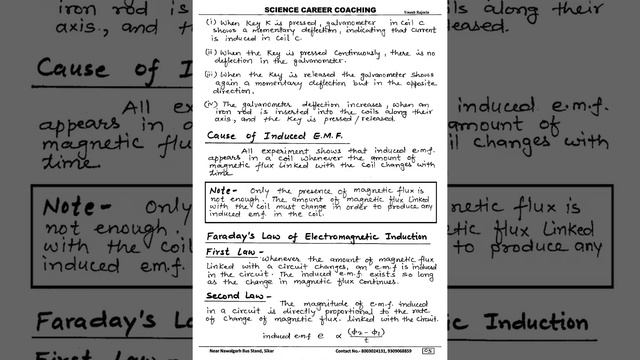 SCIENCE CAREER COACHING
(i) When Key K is pressed, galvanometer in coil C
shows a momentary deflection, indicating that current
is induced in coil C.
(ii) When the Key is pressed continuously, there is no
deflection in the galvanometer.
(iii) When the Key is released the galvanometer shows
again a momentary deflection but in the opposite
direction.
(iv) The galvanometer deflection increases, when an
iron rod is inserted into the coils along their
axis, and the Key is pressed / released.
Cause of Induced E.M.F.
All experiment shows that induced e.m.f.
appears in a coil whenever the amount of
magnetic flux linked with the coil changes with
time.
Note - Only the presence of magnetic flux is
not enough. The amount of magnetic flux linked
with the coil must change in order to produce any
induced emf. in the coil.
Faraday's Law of Electromagnetic Induction
First Law -
Whenever the amount of magnetic flux
linked with a circuit changes, an e.m.f is induced
in the circuit. The induced e.m.f. exists so long
as the change in magnetic flux continues.
Second Law -
The magnitude of e.m.f. induced
in a circuit is directly proportional to the rate
of change of magnetic flux. linked with the circuit.
induced emf e ∝ (ϕ2 - ϕ1)
t
Near Nawalgarh Bus Stand, Sikar Contact No.- 8003024131, 9309068859
iron rod is
axis., and the
coils along their
eased.
Cause of I
All ex
appears in a
magnetic flux
time
induced e.m.f.
amount of
coil changes with
Note - Only
not enough.
with the coil
induced emf.
netic flux is
etic flux linked
to produce any
Faraday's L
First Law -
netic Induction